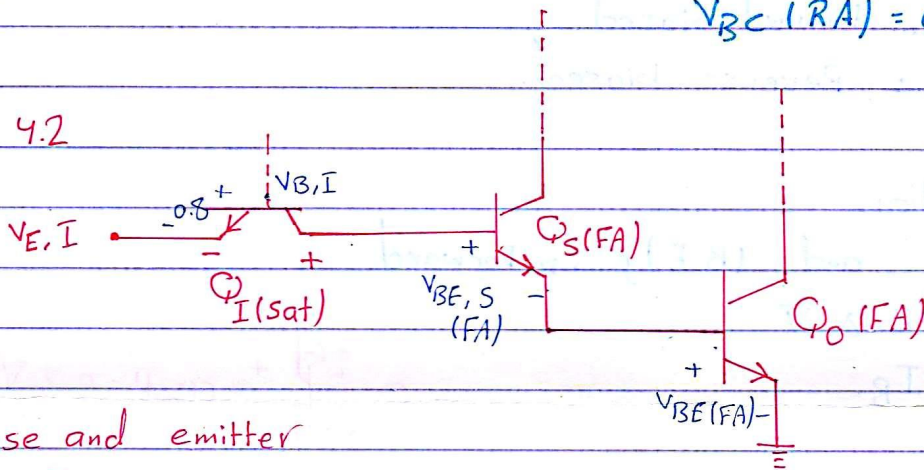 VBC (RA) =
4.2
VB,I
+
-0.8
VE,I
-
+
QI(sat)
QS(FA)
+
VBE,S
-
(FA)
QO (FA)
+
VBE(FA)-
se and emitter